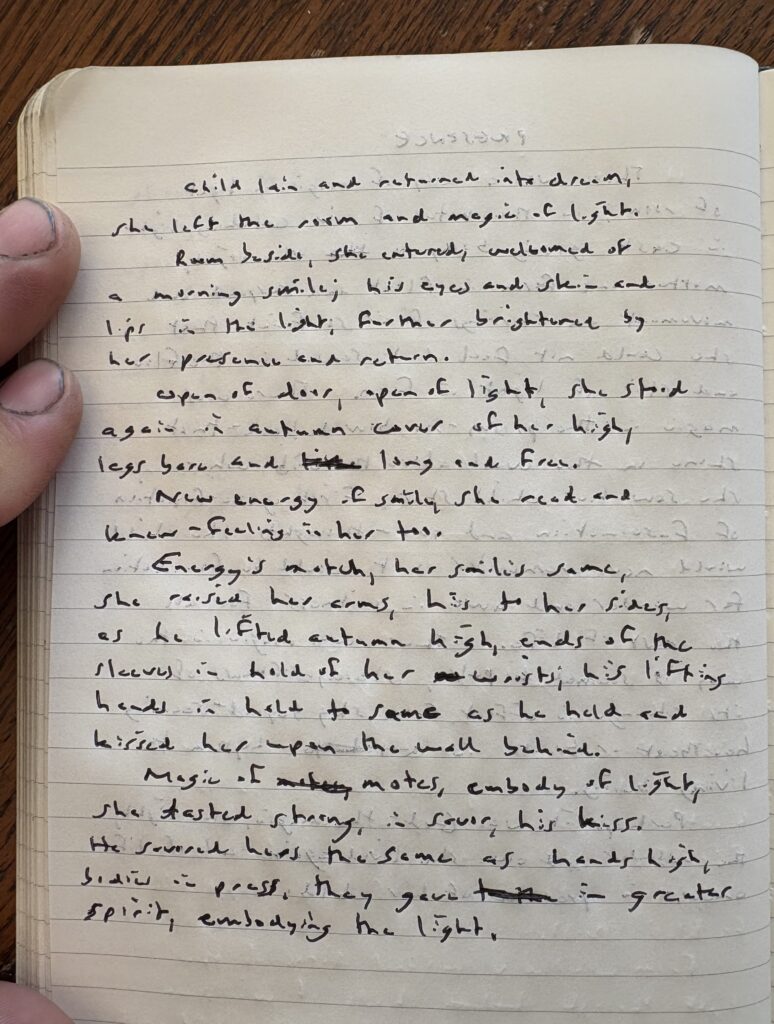 Child lain and returned into dream,
she left the room and magic of light.
Room beside, she entered, welcomed of
a morning smile; his eyes and skin and
lips in the light, further brightened by
her presence and return.
Open of door, open of light, she stood
again in autumn cover of her high,
legs bare and long and free.
New energy of smile, she read and
knew - feeling in her too.
Energy's match, her smile's same,
she raised her arms, his to her sides,
as he lifted autumn high, ends of the
sleeves in hold of her wrists; his lifting
hands in held to same as he held and
kissed her upon the wall behind.
Magic of motes, embody of light,
she tasted strong, in savor, his kiss.
He savored hers the same as hands high,
bodies in press, they gave in greater
spirit, embodying the light.